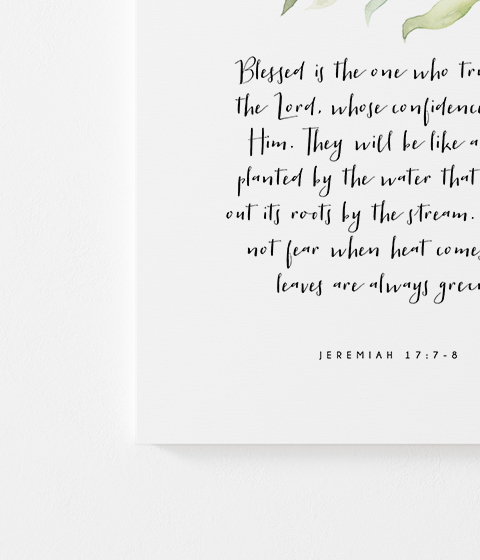 Blessed is the one who tru
the Lord, whose confidence
Him. They will be like a
planted by the water that
out its roots by the stream.
not fear when heat comes
leaves are always green
JEREMIAH 17:7-8